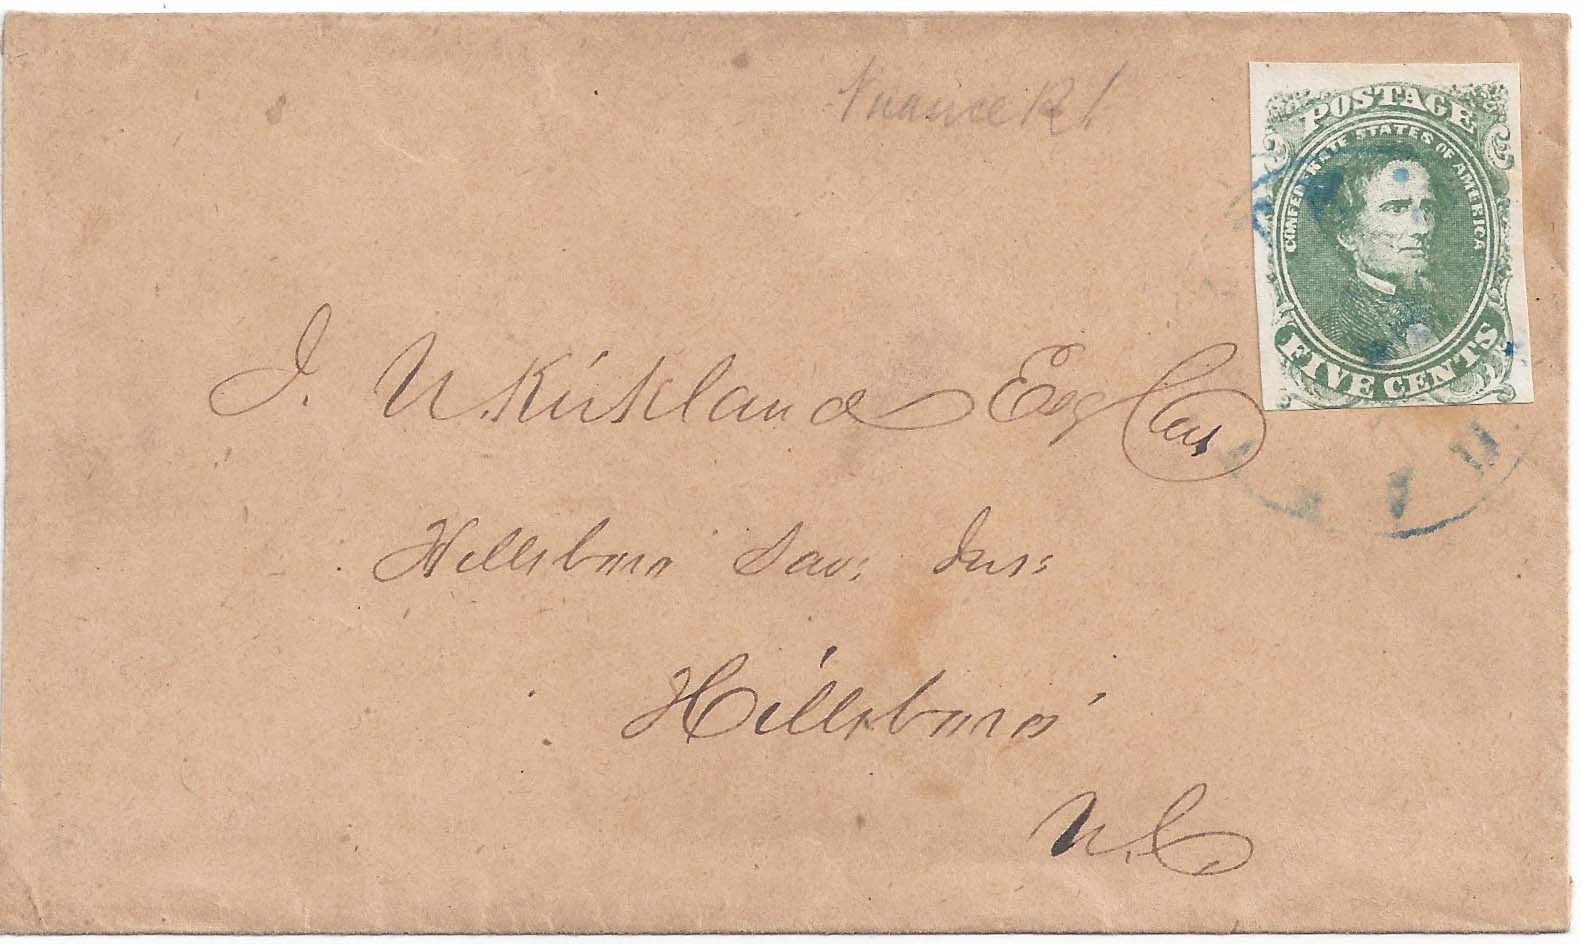 POSTAGE
CONFEDERATE STATES OF AMERICA
FIVE CENTS
J. W. Kirkland Esq Cas
Hillsboro Sav: Ins:
Hillsboro'
N.C.